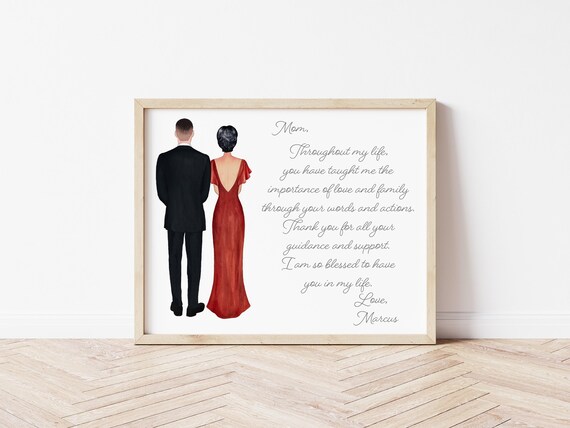 Mom,
Throughout my life,
you have taught me the
importance of love and family
through your words and actions.
Thank you for all your
guidance and support.
I am so blessed to have
you in my life.
Love,
Marcus